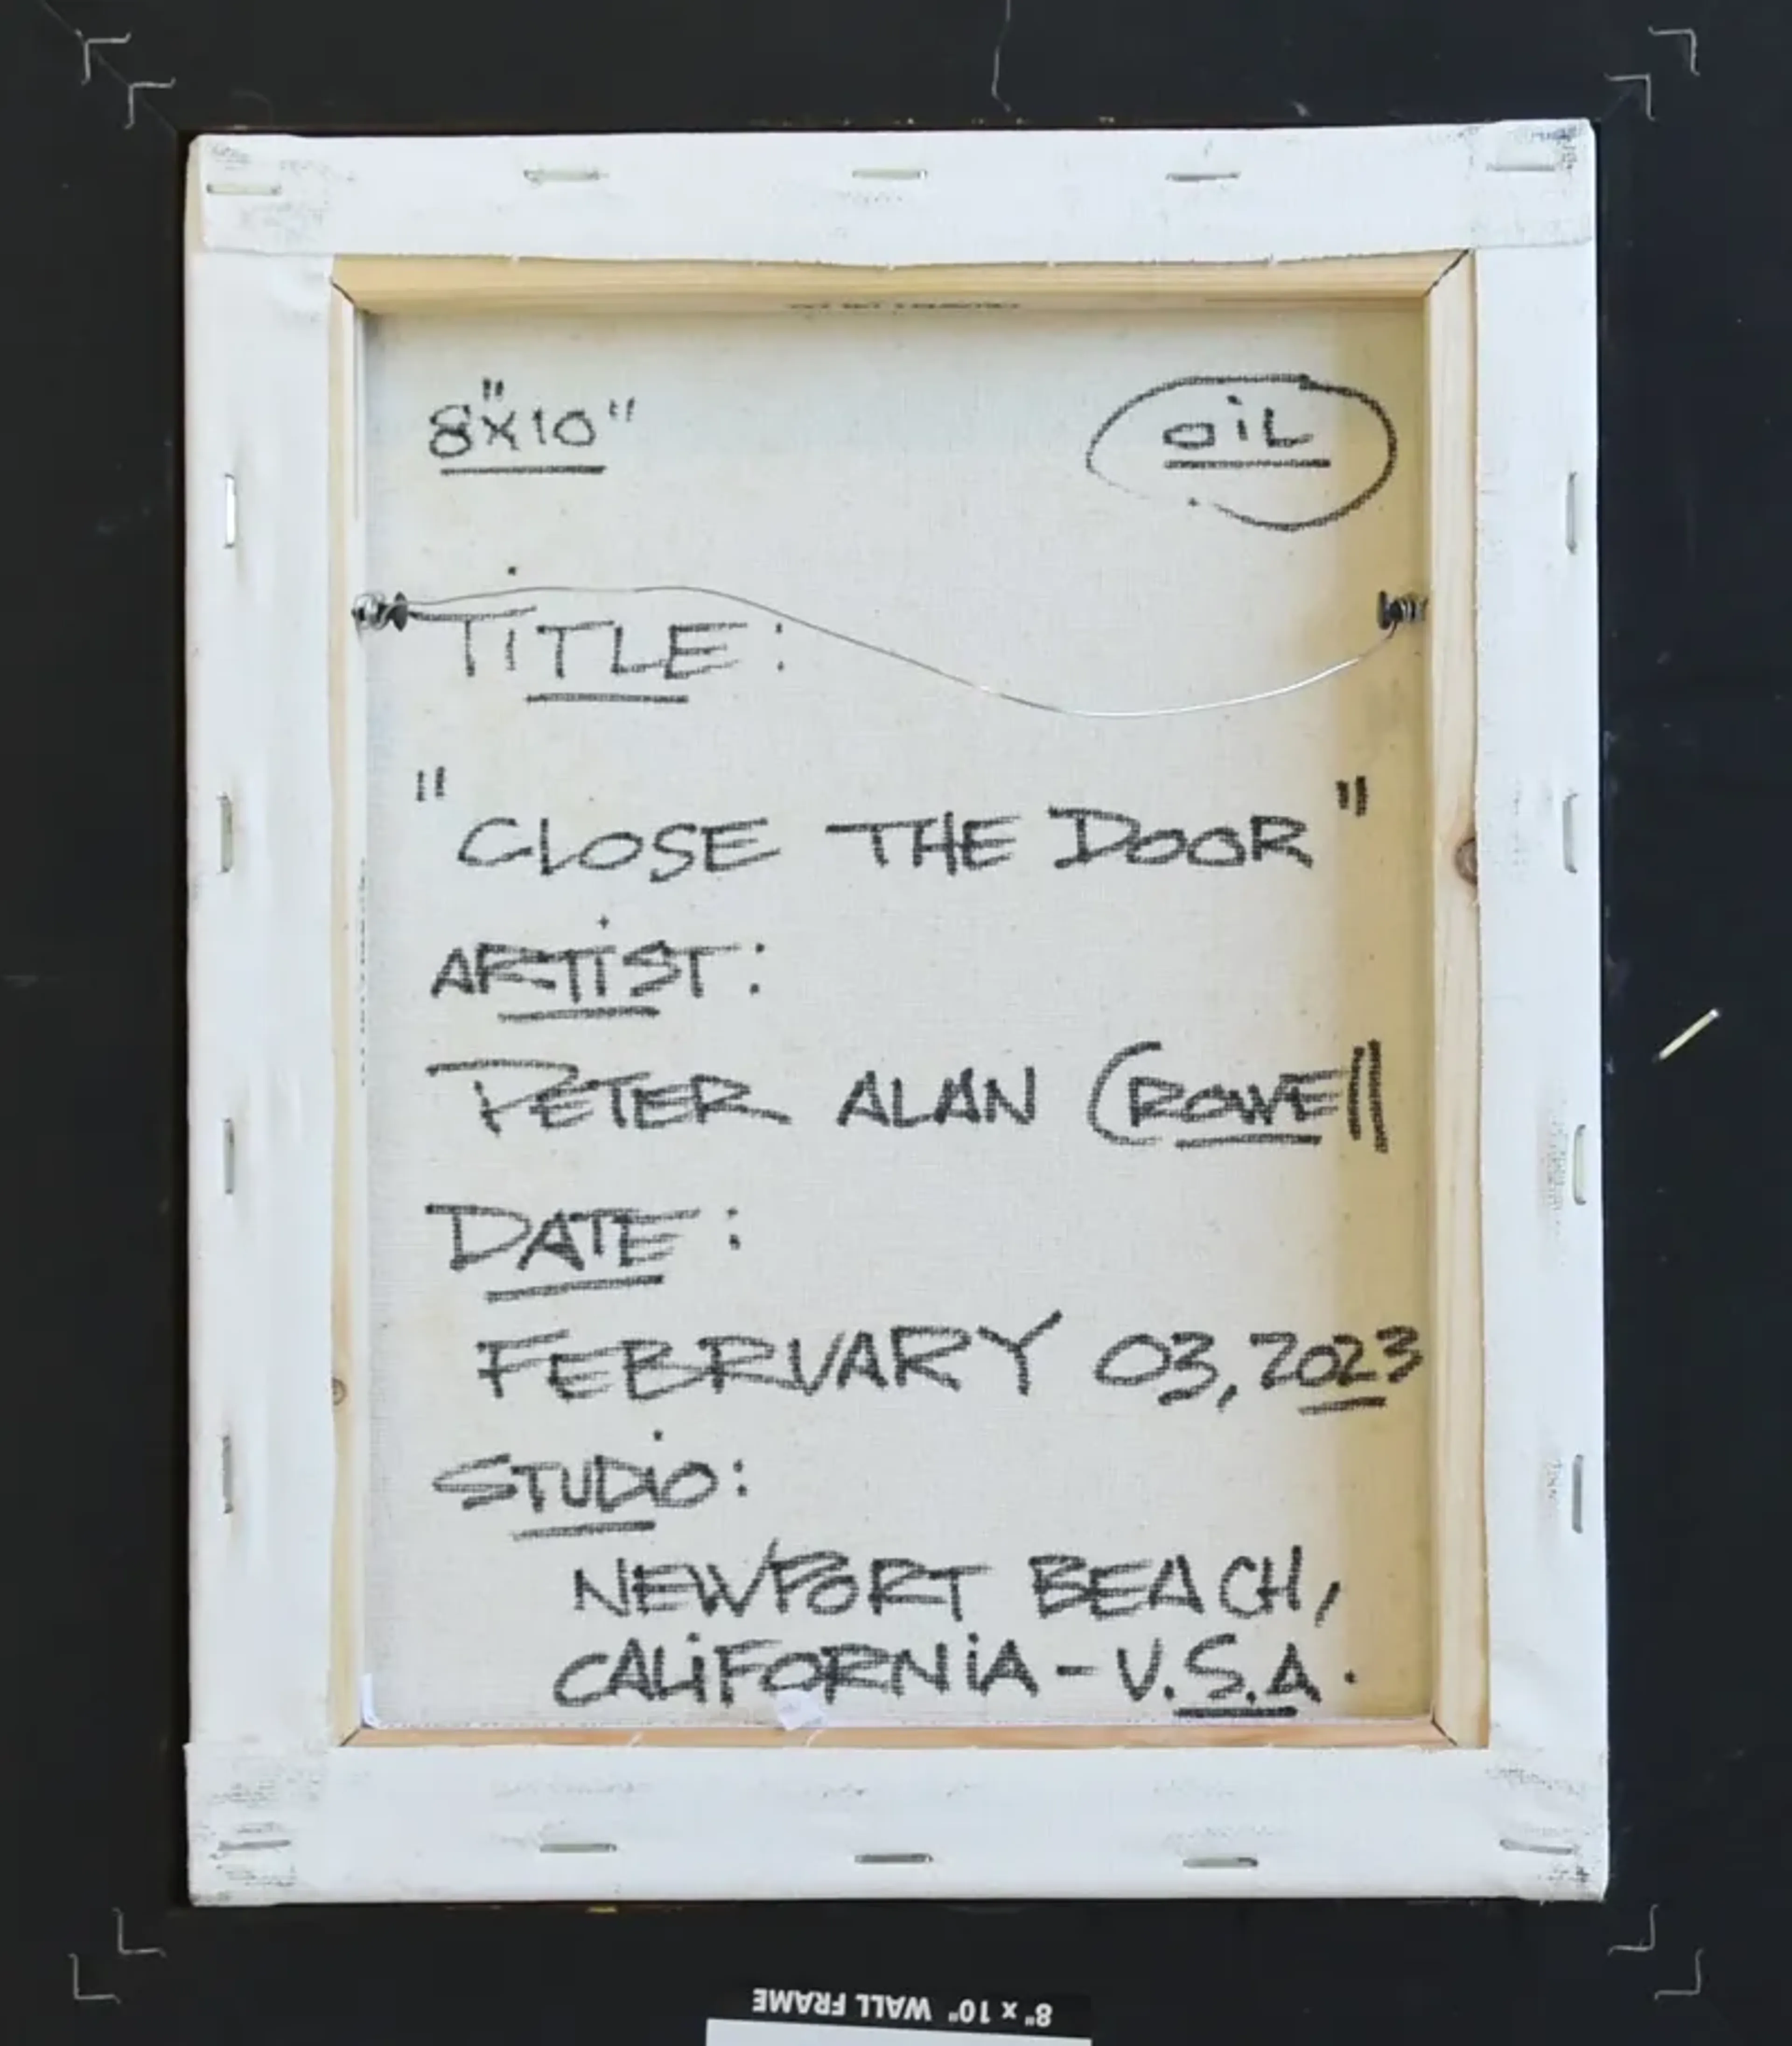 8"X10"
OiL
TiTLE:
"CLOSE THE DOOR"
ARTiST:
PETER ALAN CROWEll
DATE:
FEBRUARY 03, 2023
STUDiO:
NEWPORT BEACH,
CALiFORNiA - U.S.A.
8" x 10" WALL FRAME